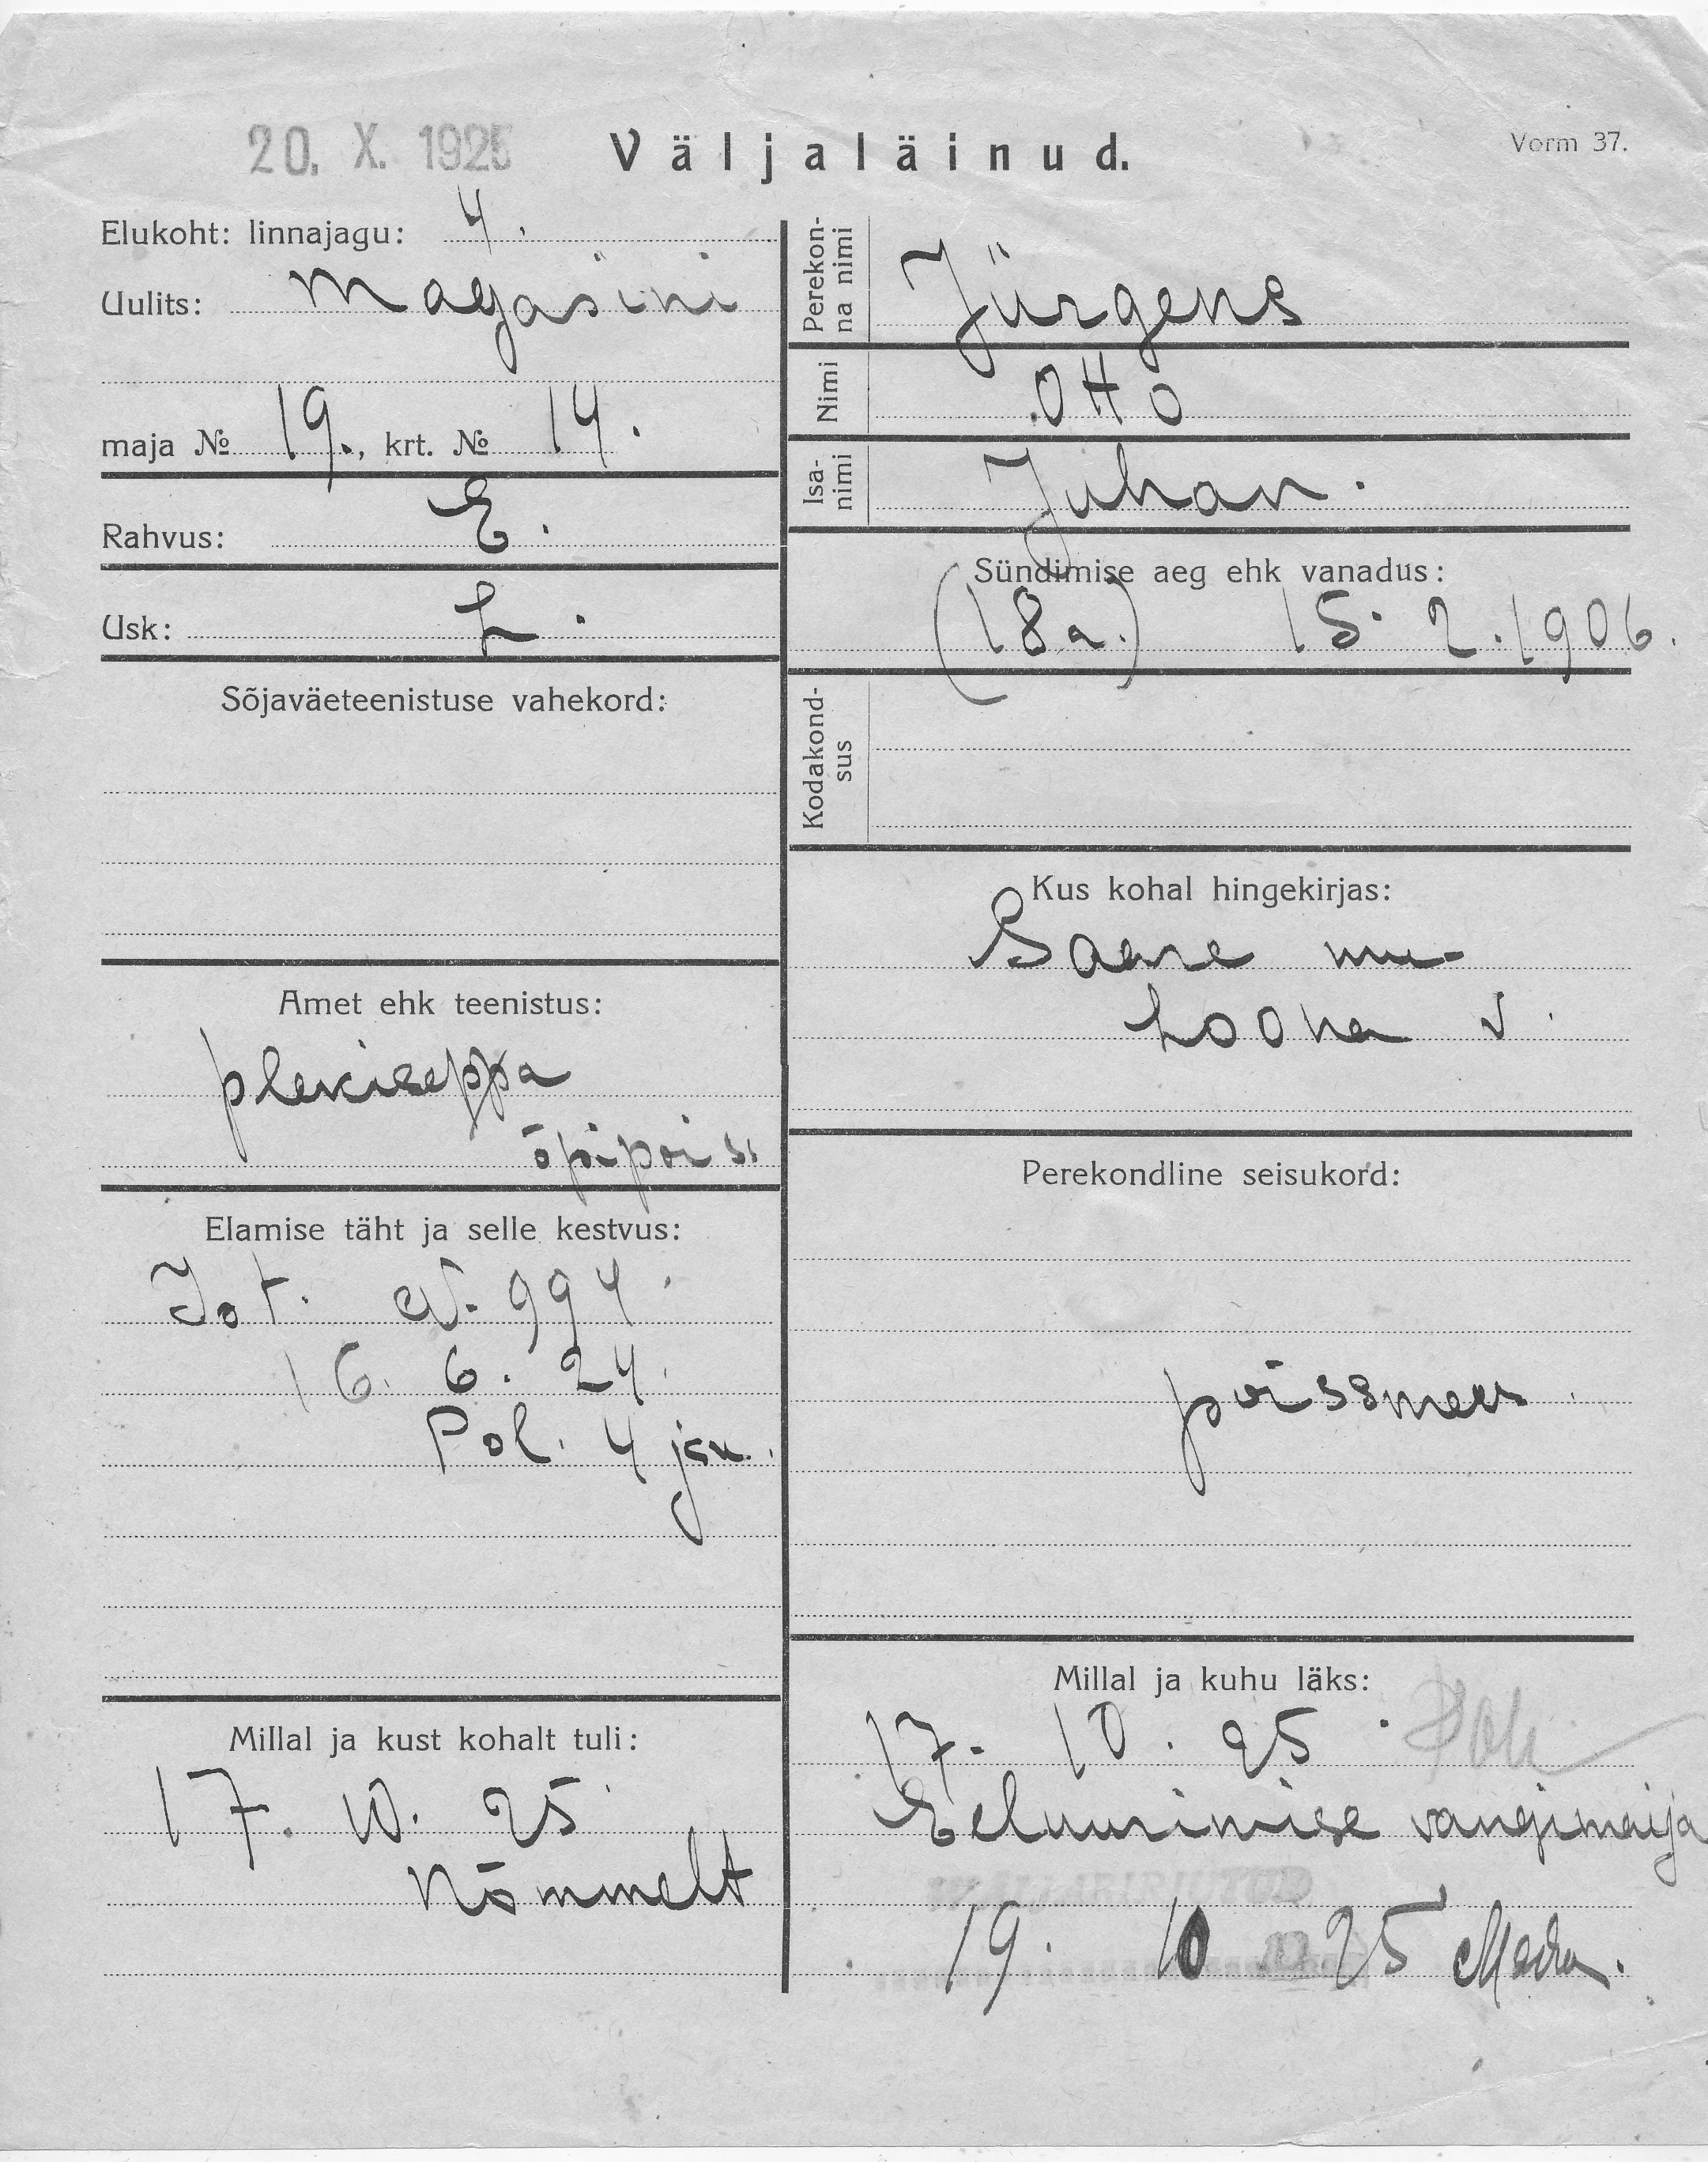 20. X. 1925 Väljaläinud. Vorm 37.
Elukoht: linnajagu: 4.
Uulits: Magasini
maja № 19., krt. № 14.
Rahvus: E.
Usk: L.
Sõjaväeteenistuse vahekord:
Amet ehk teenistus:
plekiseppa
õpipois
Elamise täht ja selle kestvus:
Iot. N. 994.
16. 6. 24.
Pol. 4 jsk.
Millal ja kust kohalt tuli:
17. 10. 25
Nõmmelt
Perekon-
na nimi Jürgens
Nimi Otto
Isa-
nimi Juhan.
Sündimise aeg ehk vanadus:
(18 a.) 15. 2. 1906.
Kodakond-
sus
Kus kohal hingekirjas:
Saare m-
Loona v.
Perekondline seisukord:
poissmees
Millal ja kuhu läks:
17. 10. 25.
Eeluurimise vangimaija
19. 10 25